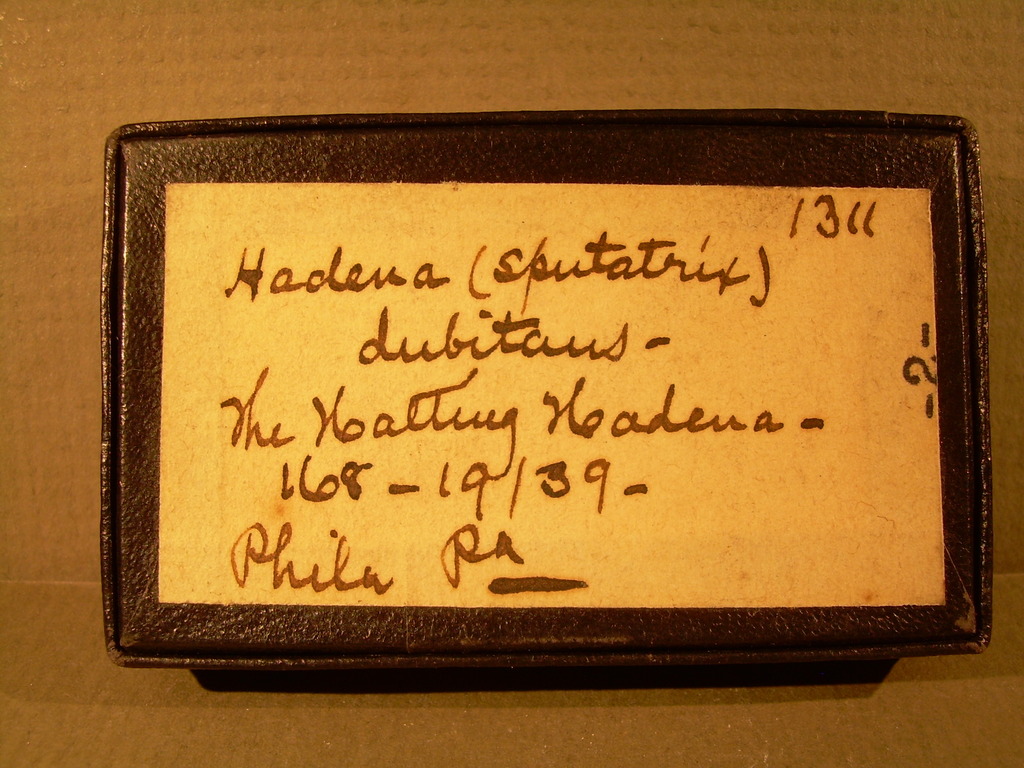 1311
Hadena (sputatrix)
dubitans -
The Halting Hadena -
168 - 19/39 -
Phila Pa
-2-